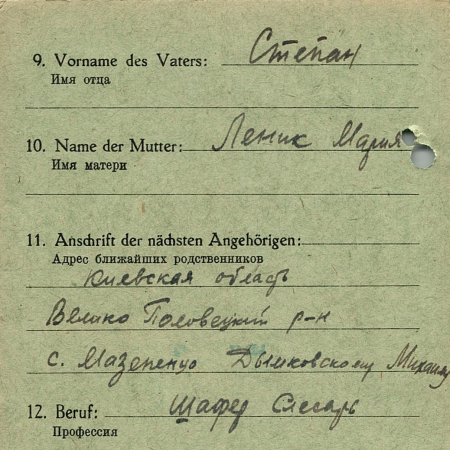 9. Vorname des Vaters: Степан
Имя отца
10. Name der Mutter: Леник Мария
Имя матери
11. Anschrift der nächsten Angehörigen:
Адрес ближайших родственников
Киевская область
Велико Половецкий р-н
с. Мазепенцо Дымковскому Михаилу
12. Beruf: Шафер Слесарь
Профессия